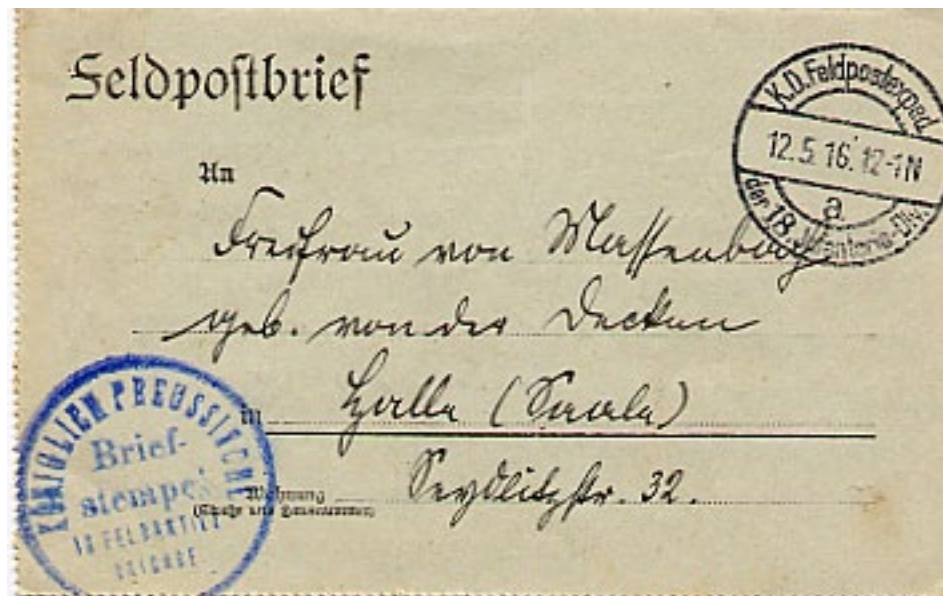 Feldpostbrief
K.D. Feldpostexped.
12.5.16. 12-1N
a
der 18. Infanterie-Div.
An
Freifrau von Massenbach
geb. von der Decken
in Halle (Saale)
Wohnung Seydlitzstr. 32.
(Straße und Hausnummer)
KÖNIGLICH PREUSSISCHE
Brief-
stempel
18 FELDARTILL
BRIGADE